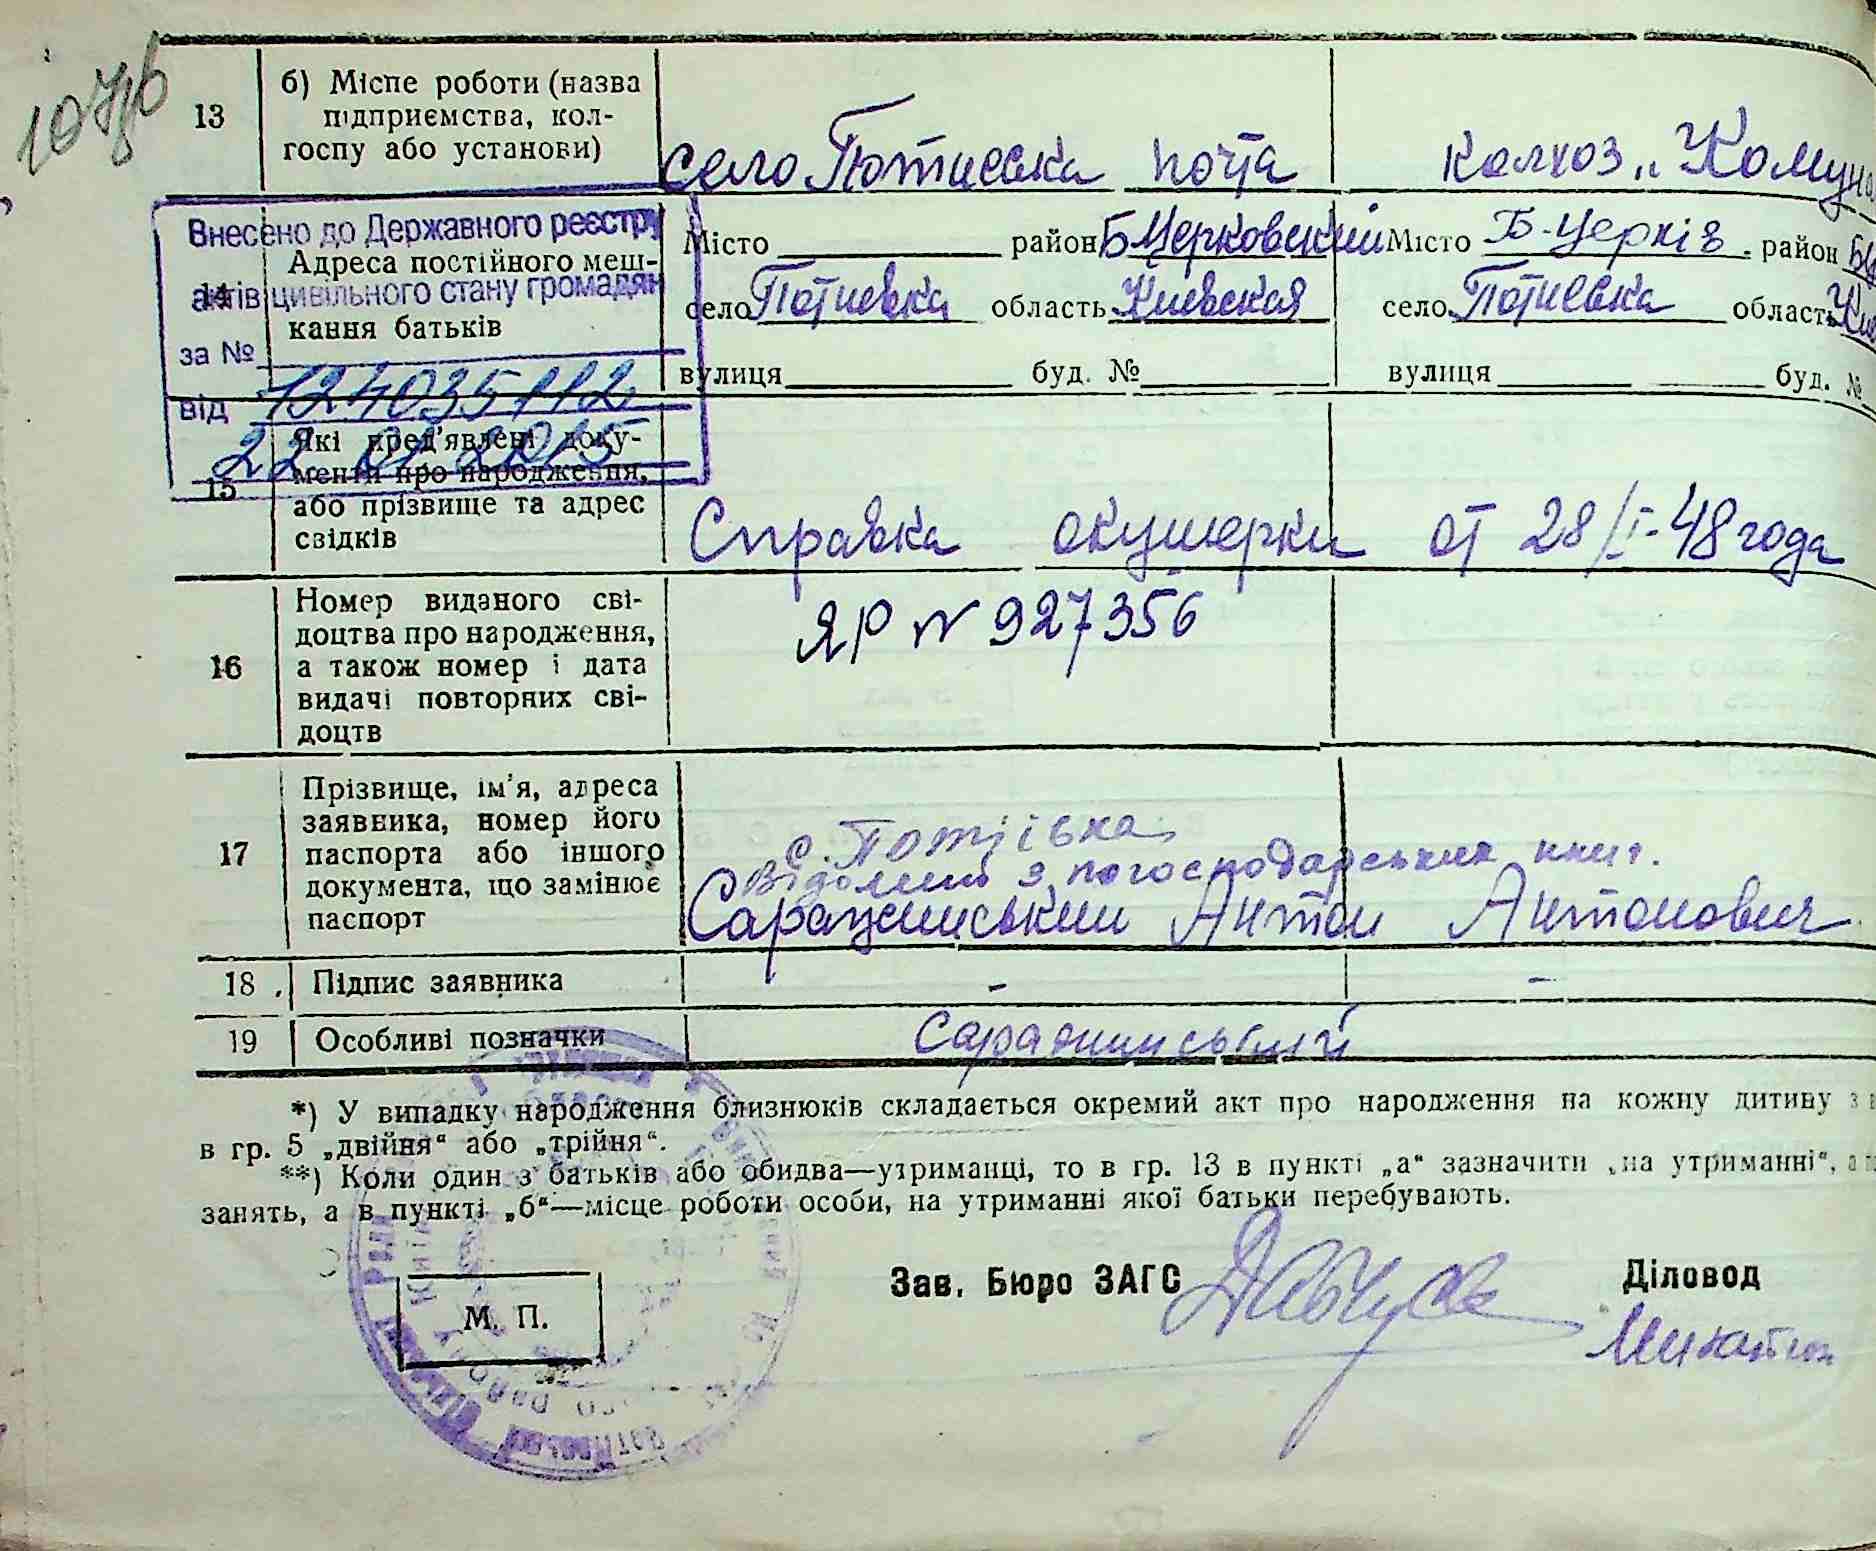 13
б) Місце роботи (назва
підприємства, кол-
госпу або установи)
село Потиевка почта
колхоз „Комун
Внесено до Державного реєстру
актів цивільного стану громадян
за № 124035112
від 22.01.2015
14
Адреса постійного меш-
кання батьків
Місто район Б Церковский
село Потиевка область Киевская
вулиця буд. №
Місто Б-Церків район
село Потиевка область
вулиця буд. №
15
Які пред'явлені доку-
менти про народження,
або прізвище та адрес
свідків
Справка окушерки от 28/I-48 года
16
Номер виданого сві-
доцтва про народження,
а також номер і дата
видачі повторних сві-
доцтв
ЯР N 927356
17
Прізвище, ім'я, адреса
заявника, номер його
паспорта або іншого
документа, що замінює
паспорт
с. Потіївка
з погосподарських книг.
Антон Антонович
18
Підпис заявника
- -
19
Особливі позначки
*) У випадку народження близнюків складається окремий акт про народження на кожну дитину з
в гр. 5 „двійня“ або „трійня“.
**) Коли один з батьків або обидва—утриманці, то в гр. 13 в пункті „а“ зазначити „на утриманні“, а
занять, а в пункті „б“—місце роботи особи, на утриманні якої батьки перебувають.
М. П.
Зав. Бюро ЗАГС
Діловод